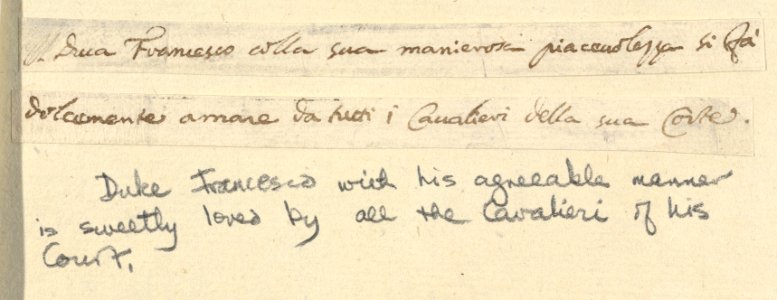 Il Duca Francesco colla sua manierosa piacevolezza si fà
dolcemente amare da tutti i Cavalieri della sua Corte.
Duke Francesco with his agreeable manner
is sweetly loved by all the Cavalieri of his
Court.